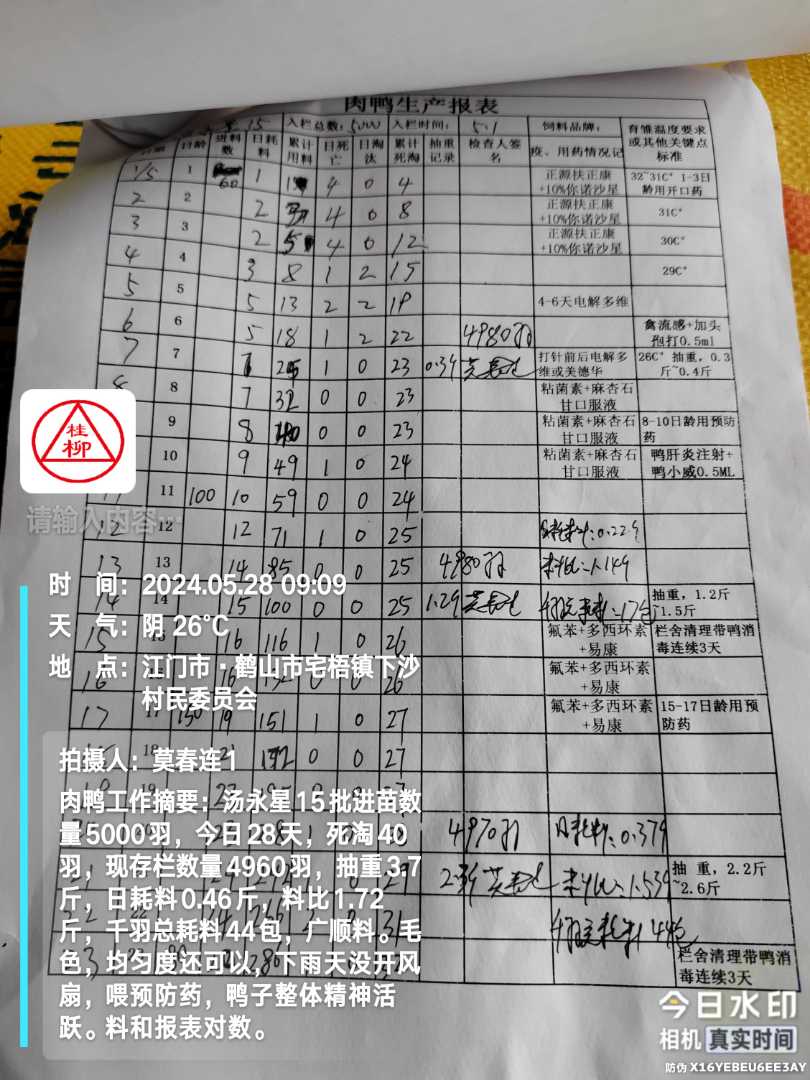 肉鸭生产报表
15 入栏总数: 5000 入栏时间: 5.1 饲料品牌: 育雏温度要求或其他关键点标准
日龄 进料数 日耗料 累计用料 日死亡 日淘汰 累计死淘 抽重记录 检查人签名 疫、用药情况记
1/5 1 60 1 4 0 4 正源扶正康+10%你诺沙星 32~31C° 1-3日龄用开口药
2 2 2 4 0 8 正源扶正康+10%你诺沙星 31C°
3 3 2 5 4 0 12 正源扶正康+10%你诺沙星 30C°
4 4 3 8 1 2 15 29C°
5 5 5 13 2 2 19 4-6天电解多维
6 6 5 18 1 2 22 4980羽 禽流感+加头孢打0.5ml
7 7 7 25 1 0 23 0.39 莫春连 打针前后电解多维或美德华 26C° 抽重,0.3斤~0.4斤
8 8 7 32 0 0 23 粘菌素+麻杏石甘口服液
9 8 40 0 0 23 粘菌素+麻杏石甘口服液 8-10日龄用预防药
10 9 49 1 0 24 粘菌素+麻杏石甘口服液 鸭肝炎注射+鸭小威0.5ML
11 11 100 10 59 0 0 24
12 12 12 71 1 0 25 日耗料:0.229
13 13 14 85 0 0 25 4980羽 料比:1.149
14 14 15 100 0 0 25 1.29 莫春连 千羽总耗料:17包 抽重,1.2斤~1.5斤
15 15 16 116 1 0 26 氟苯+多西环素+易康 栏舍清理带鸭消毒连续3天
16 16 16 132 0 0 26 氟苯+多西环素+易康
17 17 150 19 151 1 0 27 氟苯+多西环素+易康 15-17日龄用预防药
18 21 172 0 0 27
4970羽 日耗料:0.379
莫春连 料比:1.539 抽重,2.2斤~2.6斤
31 千羽总耗料 44包
栏舍清理带鸭消毒连续3天
桂柳
请输入内容…
时 间:2024.05.28 09:09
天 气:阴 26℃
地 点:江门市·鹤山市宅梧镇下沙
村民委员会
拍摄人:莫春连1
肉鸭工作摘要:汤永星15批进苗数
量5000羽,今日28天,死淘40
羽,现存栏数量4960羽,抽重3.7
斤,日耗料0.46斤,料比1.72
斤,千羽总耗料44包,广顺料。毛
色,均匀度还可以,下雨天没开风
扇,喂预防药,鸭子整体精神活
跃。料和报表对数。
今日水印
相机 真实时间
防伪 X16YEBEU6EE3AY